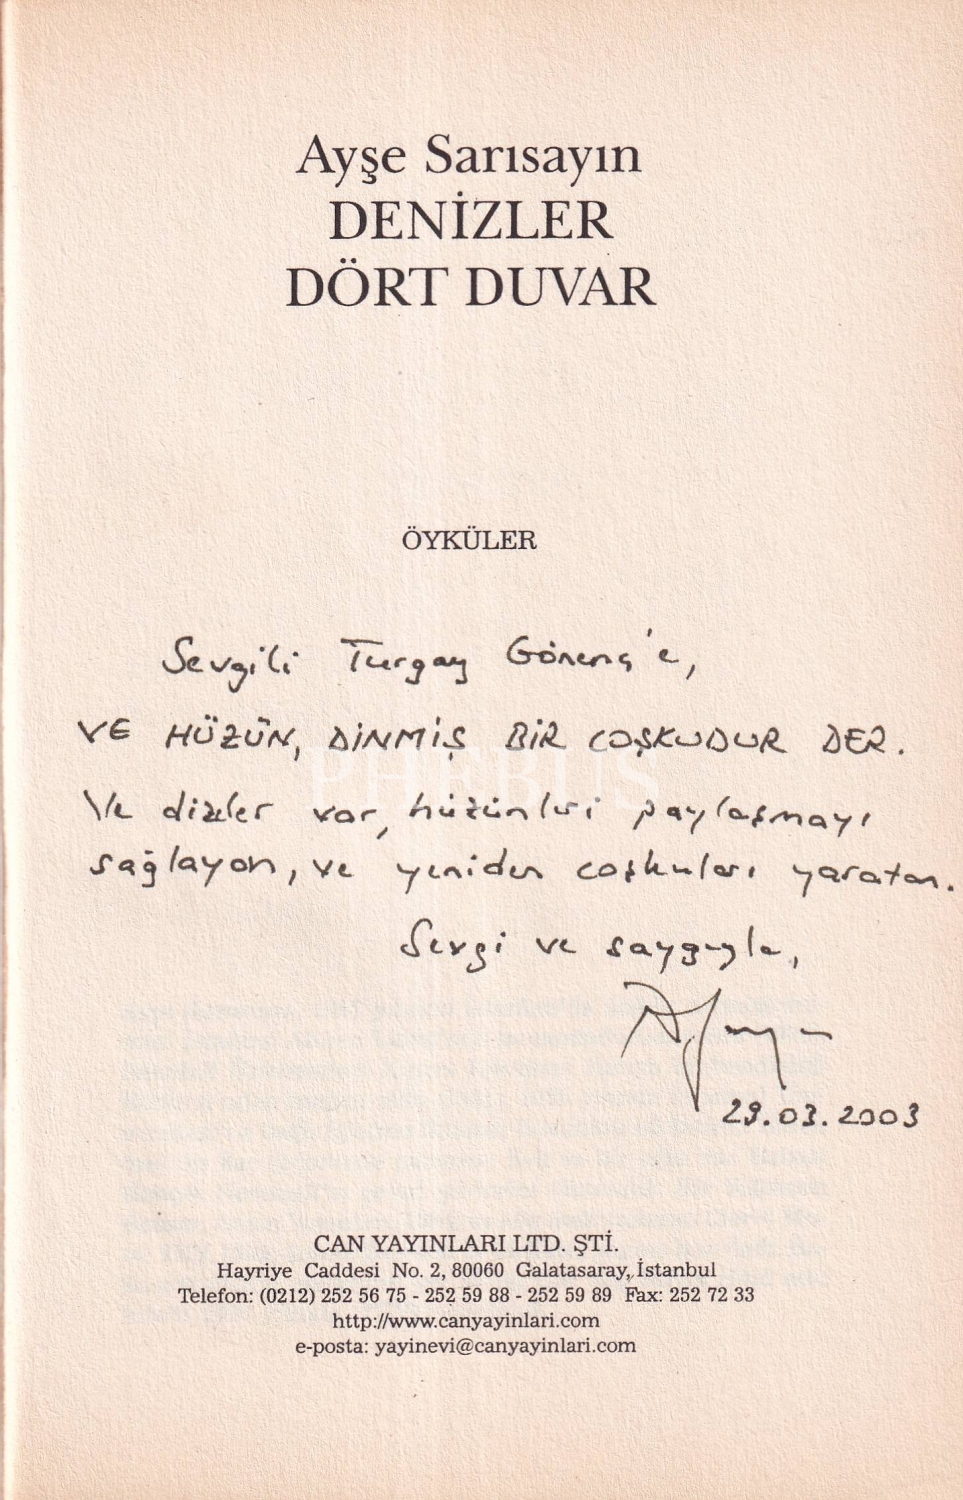 Ayşe Sarısayın
DENİZLER
DÖRT DUVAR
ÖYKÜLER
Sevgili Turgay Gönenç'e,
VE HÜZÜN, DİNMİŞ BİR COŞKUDUR DER.
Ve dizeler var, hüzünleri paylaşmayı
sağlayan, ve yeniden coşkuları yaratan.
Sevgi ve saygıyla,
29.03.2003
PHEBUS
CAN YAYINLARI LTD. ŞTİ.
Hayriye Caddesi No. 2, 80060 Galatasaray, İstanbul
Telefon: (0212) 252 56 75 - 252 59 88 - 252 59 89 Fax: 252 72 33
http://www.canyayinlari.com
e-posta: yayinevi@canyayinlari.com